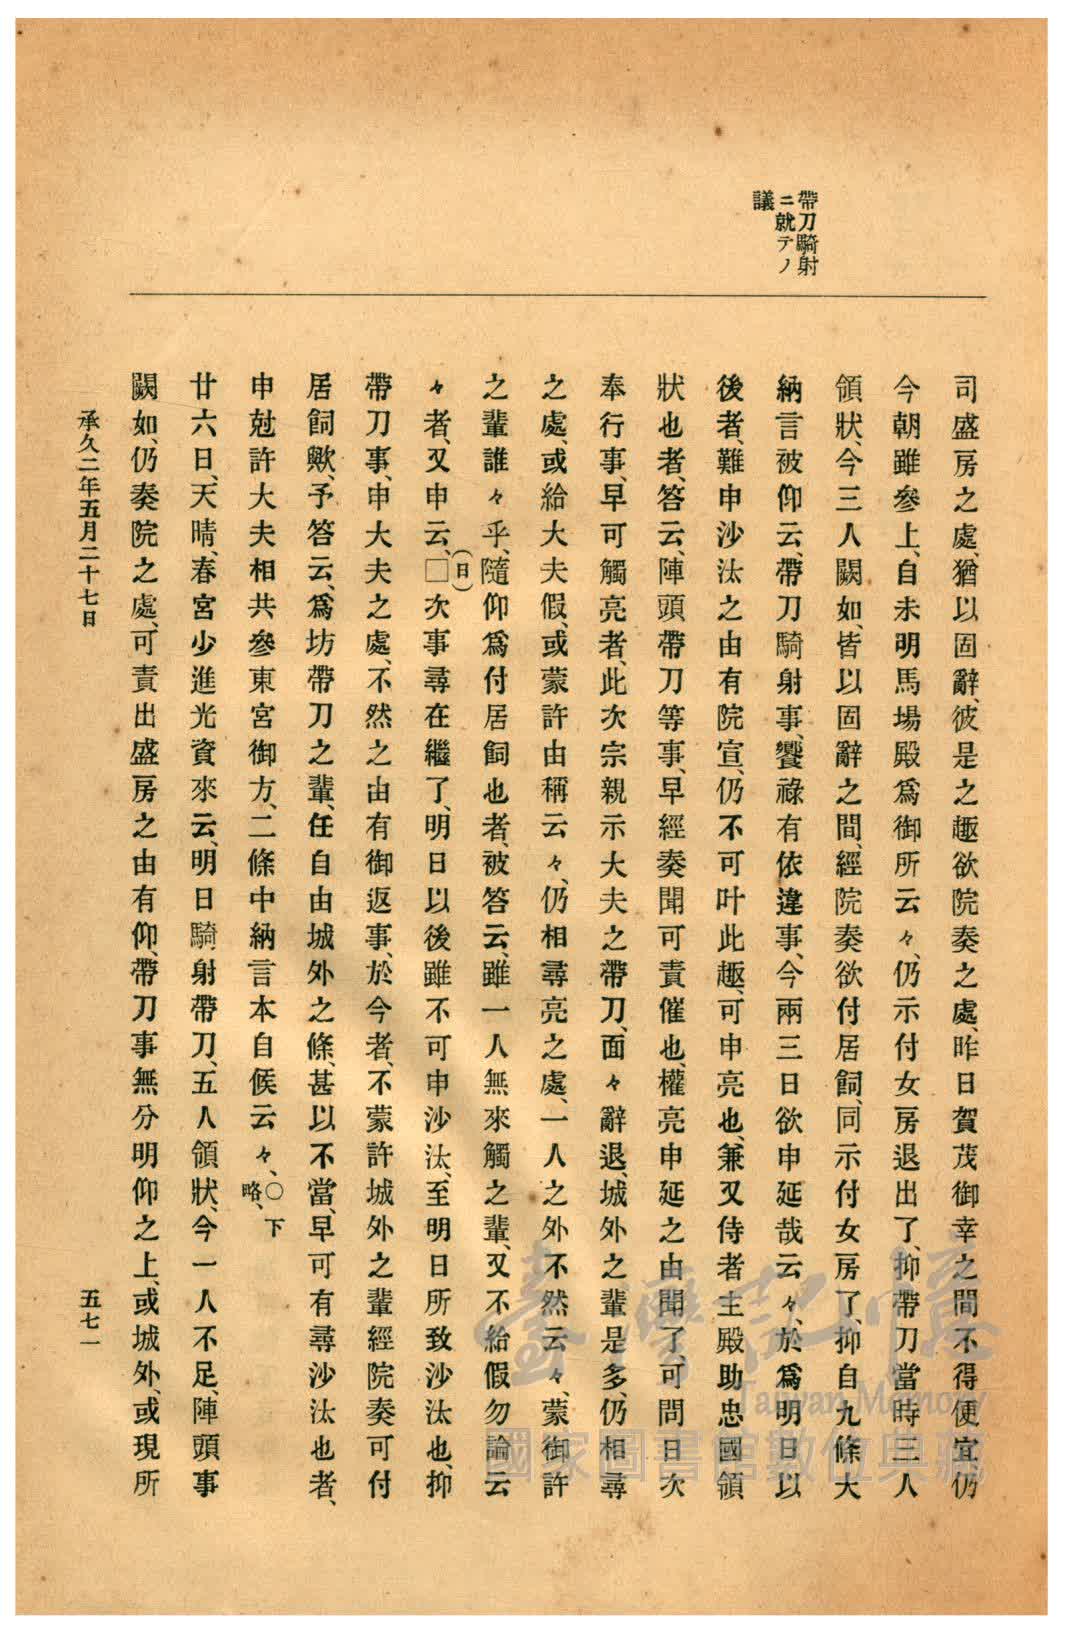 帶刀騎射
ニ就テノ
議
司盛房之處、猶以固辭、彼是之趣欲院奏之處、昨日賀茂御幸之間不得便宜、仍
今朝雖參上、自未明馬場殿爲御所云々、仍示付女房退出了、抑帶刀當時三人
領狀、今三人闕如、皆以固辭之間、經院奏欲付居飼、同示付女房了、抑自九條大
納言被仰云、帶刀騎射事、饗祿有依違事、今兩三日欲申延哉云々、於爲明日以
後者、難申沙汰之由有院宣、仍不可叶此趣、可申亮也、兼又侍者主殿助忠國領
狀也者、答云、陣頭帶刀等事、早經奏聞可責催也、權亮申延之由聞了、可問日次
奉行事、早可觸亮者、此次宗親示大夫之帶刀、面々辭退、城外之輩是多、仍相尋
之處、或給大夫假、或蒙許由稱云々、仍相尋亮之處、一人之外不然云々、蒙御許
之輩誰々乎、隨仰爲付居飼也者、被答云、雖一人無來觸之輩、又不給假勿論云
々者、又申云、□(日)次事尋在繼了、明日以後雖不可申沙汰、至明日所致沙汰也、抑
帶刀事、申大夫之處、不然之由有御返事、於今者、不蒙許城外之輩經院奏可付
居飼歟、予答云、爲坊帶刀之輩、任自由城外之條、甚以不當、早可有尋沙汰也者、
申尅許大夫相共參東宮御方、二條中納言本自候云々、○下略、
廿六日、天晴、春宮少進光資來云、明日騎射帶刀、五人領狀、今一人不足、陣頭事
闕如、仍奏院之處、可責出盛房之由有仰、帶刀事無分明仰之上、或城外、或現所
承久二年五月二十七日
五七一
臺灣記憶
Taiwan Memory
國家圖書館數位典藏